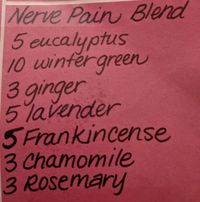 Nerve Pain Blend
5 eucalyptus
10 wintergreen
3 ginger
5 lavender
5 Frankincense
3 Chamomile
3 Rosemary